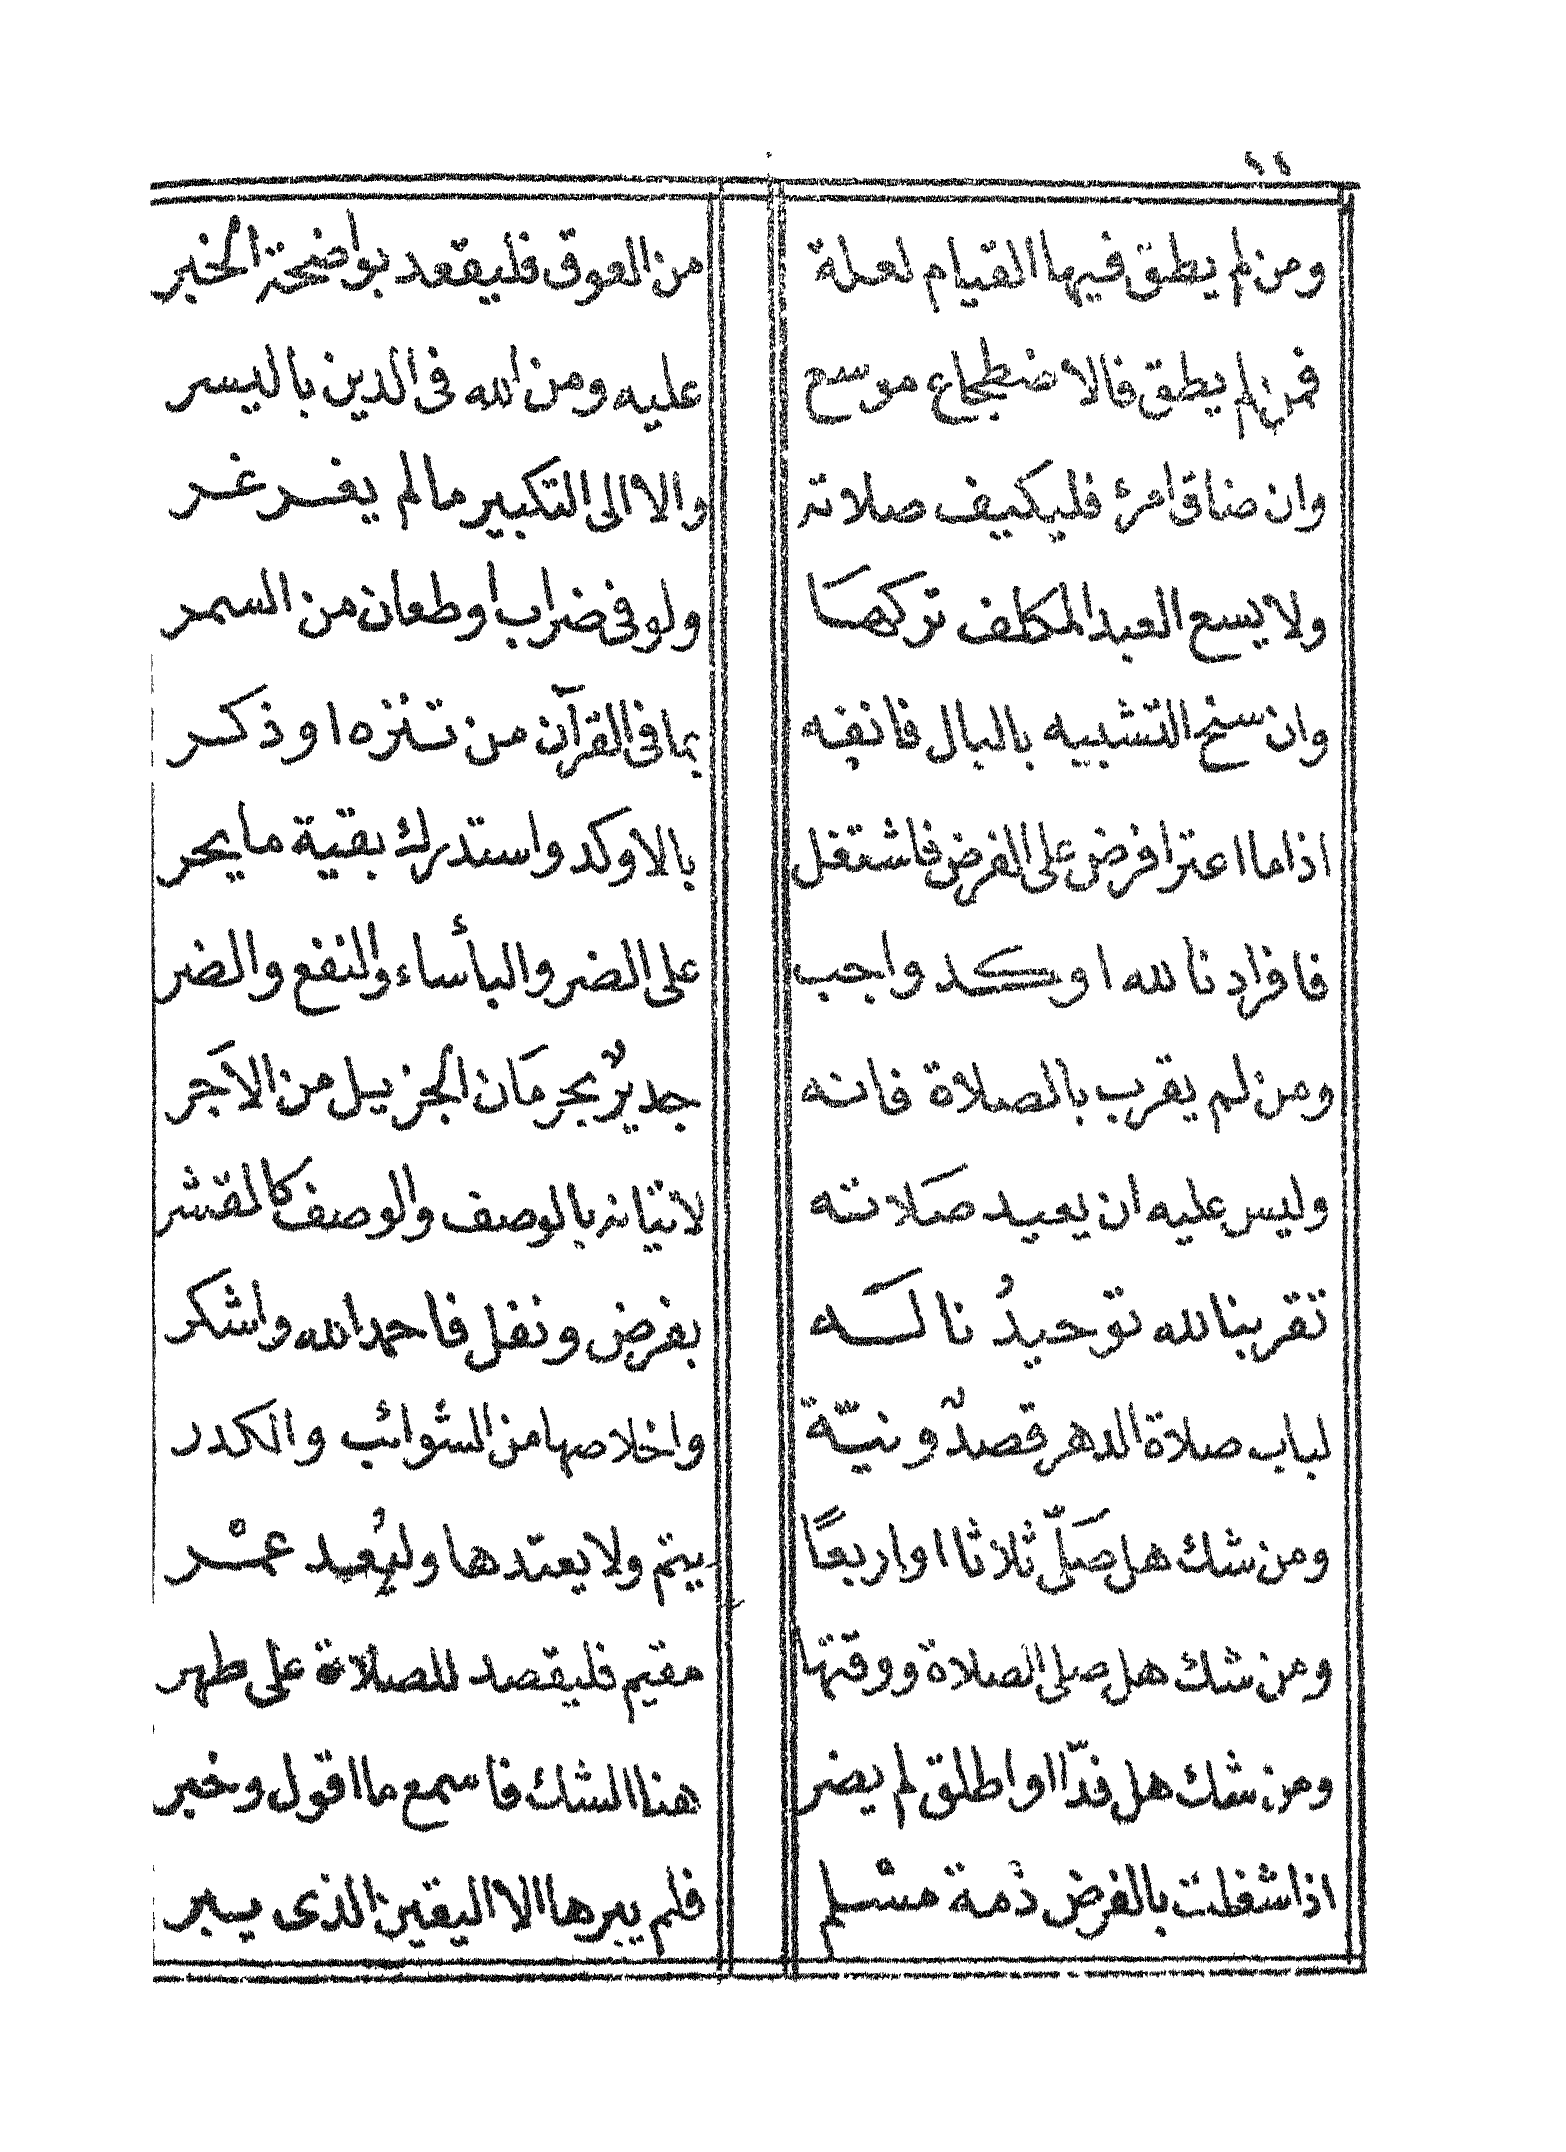 ومن لم يطق فيها القيام لعلة من العوق فليقعد بواضحة الخبر
فمن لم يطق فالاضطجاع موسع عليه ومن الله في الدين باليسر
وان ضاق امرئ فليكيف صلاته والا الى التكبير مالم يغرغر
ولا يسع العبد المكلف تركها ولو في ضراب او طعان من السمر
وان سنح التشبيه بالبال فانفه بما في القرآن من تنزه او ذكر
اذا ما اعترا فرض على الفرض فاشتغل بالاوكد واستدرك بقية ما يحر
فافرادنا لله اوكد واجب على الضر والبأساء والنفع والضر
ومن لم يقرب بالصلاة فانه جدير بحرمان الجزيل من الاجر
وليس عليه ان يعيد صلاته لاتيانه بالوصف والوصف كالمقشر
تقربنا لله توحيدُنا له بفرض ونفل فاحمد الله واشكر
لباب صلاة الدهر قصدٌ ونيّة واخلاصها من الشوائب والكدر
ومن شك هل صلّى ثلاثا او اربعًا يتم ولا يعتدها وليُعيد عمْر
ومن شك هل صلى الصلاة ووقتها مقيم فليقصد للصلاة على طهر
ومن شك هل فدّا او اطلق لم يضر هنا الشك فاسمع ما اقول وخبر
اذا شغلت بالفرض ذمة مسْلم فلم يبرها الا اليقين الذى يبر